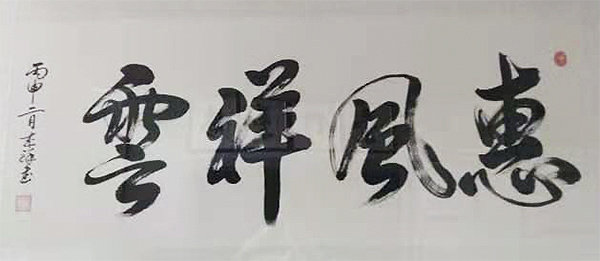 惠風祥雲
丙申二月